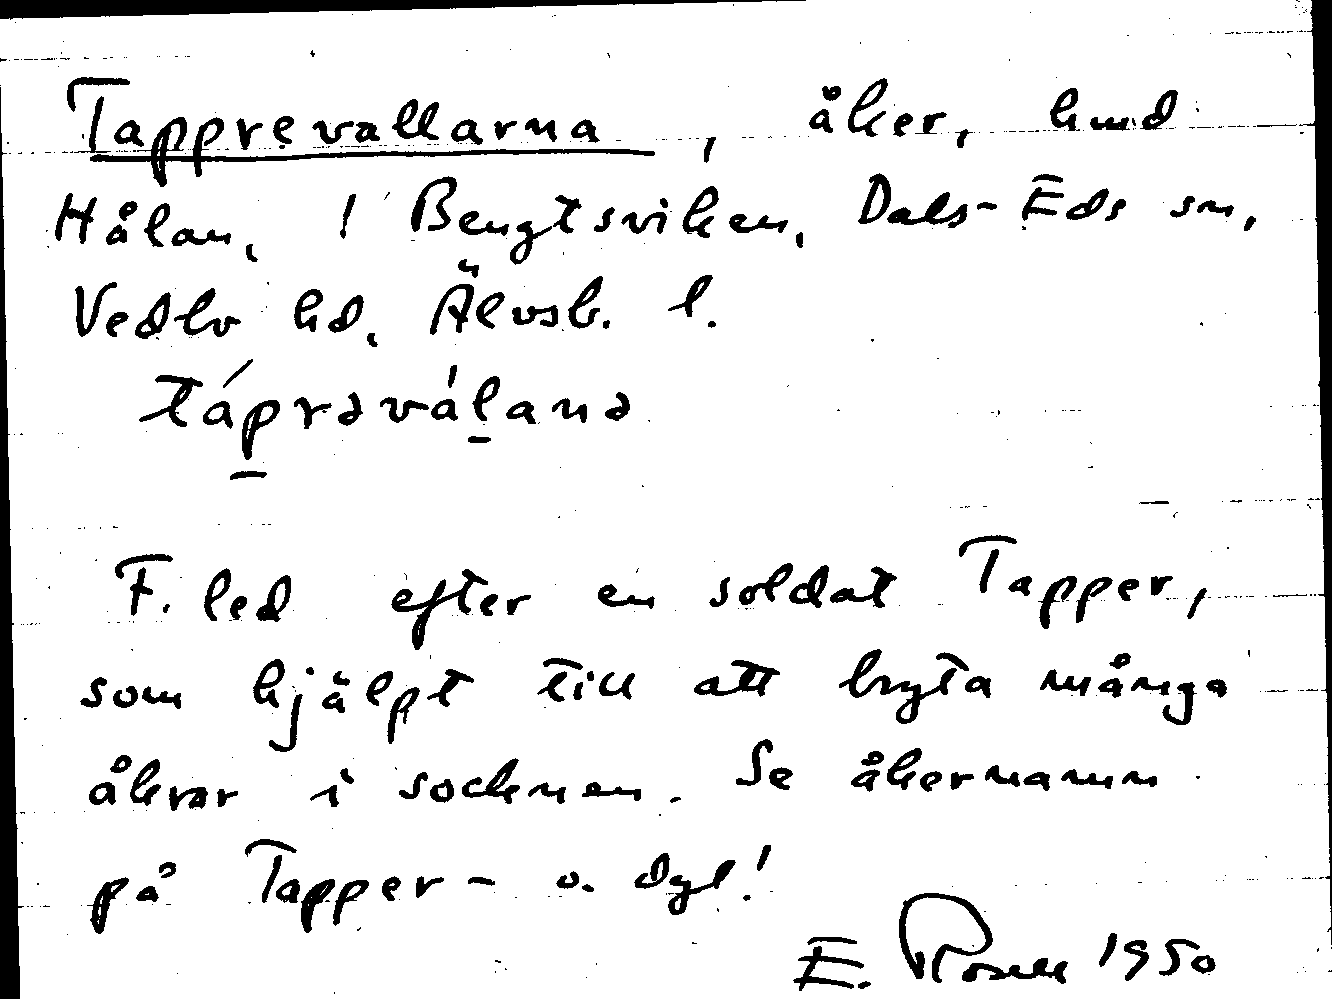 Tapprevallarna, åker, hmd
Hålan, ! Bengtsviken, Dals-Eds sn,
Vedbo hd, Älvsb. l.
táprəvàlanə
F. led efter en soldat Tapper,
som hjälpt till att bryta många
åkrar i socknen. Se åkernamn
på Tapper- o. dyl!
E. Rosell 1950